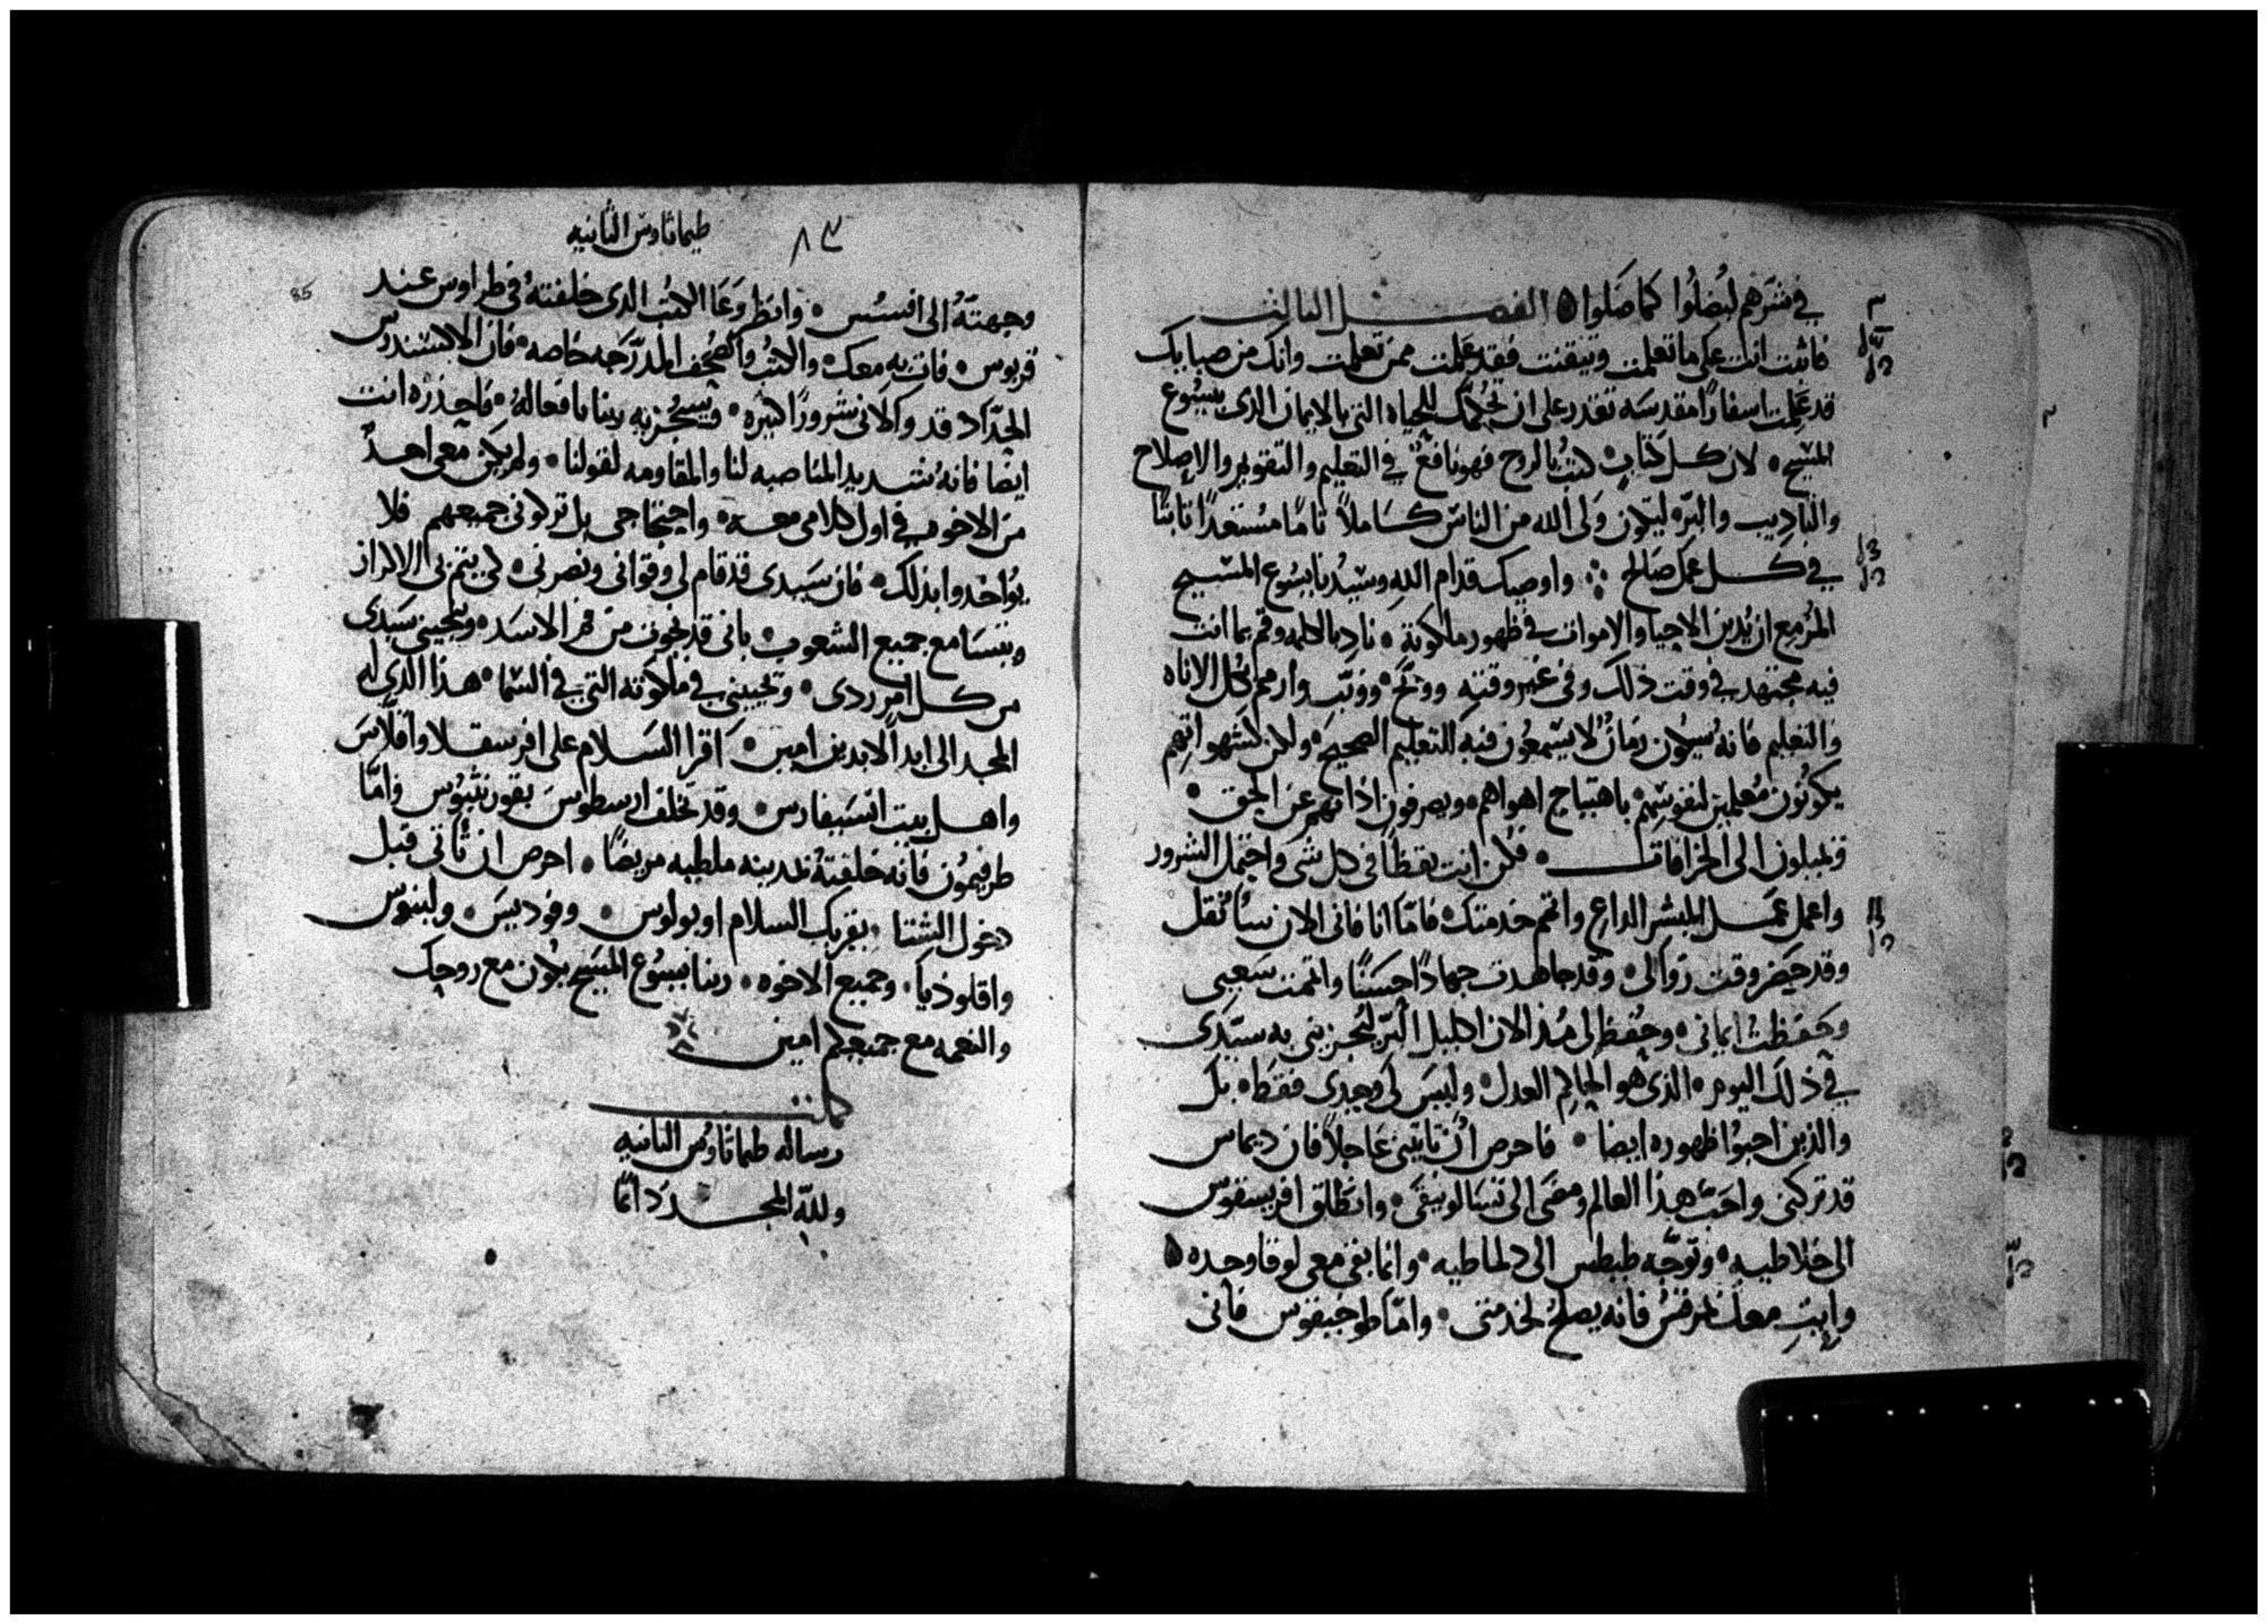 في شرهم ليضلوا كما ضلوا الفصل الثالث
فاثبت انت على ما تعلمت وتيقنت فقد علمت ممن تعلمت وانك من صبايك
قد علمت اسفارًا مقدسه تقدر على ان تحكمك للحياه التي بالايمان الذي بيسوع
المسيح لان كل كتاب كتب بالروح فهو نافع في التعليم والتقويم والاصلاح
والتاديب والبره ليكون ولي الله من الناس كاملاً تامًا مستعدًا ثابتًا
في كل عمل صالح واوصيك قدام الله وسيدنا يسوع المسيح
المزمع ان يدين الاحيا والاموات في ظهور ملكوته نادِ بالكلمه وقم بما انت
فيه مجتهد في وقت ذلك وفي غير وقته ووبخ وونب وارحم بكل الاناه
والتعليم فانه سيكون زمانٌ لا يستمعون فيه التعليم الصحيح ولكن لشهواتهم
يكونون معلمين لنفوسهم باهتياج اهواهم ويصرفون اذانهم عن الحق
ويميلون الى الخرافات فكن انت يقظًا في كل شي واحتمل الشرور
واعمل عمل المبشر الداعِ واتم خدمتك فامّا انا فاني الان سأنقل
وقد حضر وقت زوالي وقد جاهدت جهادًا حسنًا واتممت سعيي
وحفظت ايماني وحُفظ لي مُذ الان اكليل البر ليجزيني به سيّدي
في ذلك اليوم الذي هو الحاكم العدل وليس لي وحدي فقط بل
والذين احبوا ظهوره ايضا فاحرص أن تاتيني عاجلاً فان ديماس
قد تركني واحَبّ هذا العالم ومضى الى تسالونيقي وانطلق افريسقوس
الى غلاطيه وتوجّه طيطس الى دلماطيه وانما بقي معي لوقا وحده
وايتِ معك بمرقس فانه يصلح لخدمتي وامّا طوخيقوس فاني
٨٣ طيماثاوس الثانيه
85
وجهتهُ الى افسُس وانظر وعَا الكتب الذي خلفته في طراوس عند
قربوس فات به معك والكتب والصُحف المدرّجه خاصه فان الاكسندروس
الحدّاد قد وكلاني شرورًا كثيره ويُجزيه ربنا بافعاله فاحذره انت
ايضا فانه شديد المناصبه لنا والمقاومه لقولنا ولم يكن معي احدٌ
من الاخوه في اول كلامي معه واحتجاجي بل تركوني جميعهم فلا
يُواخدوا بذلك فان سَيدي قد قام لي وقواني ونصرني لكي يتم بي الاكراز
ويتسامع جميع الشعوب باني قد نجوت من فم الاسد وينجيني سَيدي
من كل امر ردي ويحييني في ملكوته التي في السما هذا الذي له
المجد الى ابد الابدين امين اقرا السَلام على افرسقلا واقلاسَ
واهل بيت انسيفارس وقد تخلف ارسطوسَ بقورنثيُوس وامّا
طرفيمُون فانه خلفتهُ بمدينه ملطيه مريضًا احرص ان تاتي قبل
دخول الشتا يقريك السلام اوبولوس وفوديسَ ولينوس
واقلوذيا وجميع الاخوه ربنا يسُوع المسَيح يكون مع روحك
والنعمه مع جميعكم امين
كملت
رساله طيماثاوس الثانيه
ولله المجد دائمًا